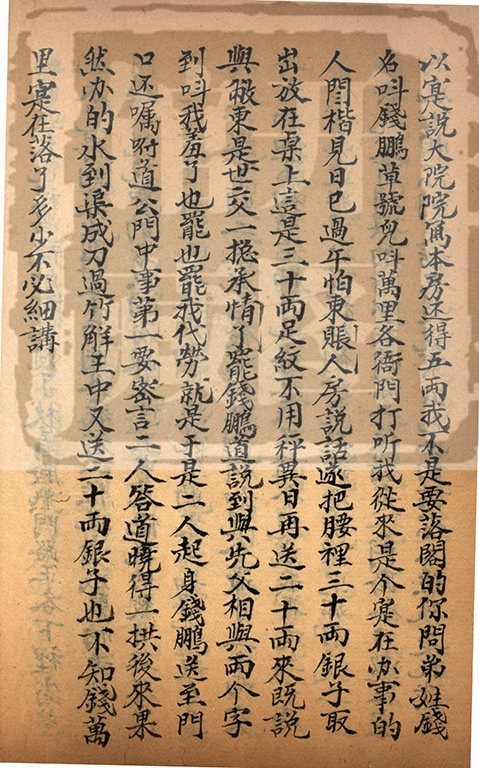 以寔説大院院寫本房还得五両我不是要落閣的你問弟姓錢
名呌錢鵬草號兒呌萬里各衙門打听我從來是个寔在办事的
人閆楷見日已過午怕東賬人房説話遂把腰裡三十両銀子取
出放在桌上這是三十両足紋不用秤異日再送二十両來既説
與敝東是世交一揔承情了罷錢鵬道説到與先父相與両个字
到呌我羞了也罷也罷我代勞就是于是二人起身錢鵬送至門
口还嘱咐道公門中事第一要密言二人答道曉得一拱後來果
然办的水到渠成刀過竹解王中又送二十両銀子也不知錢萬
里寔在落了多少不必細講